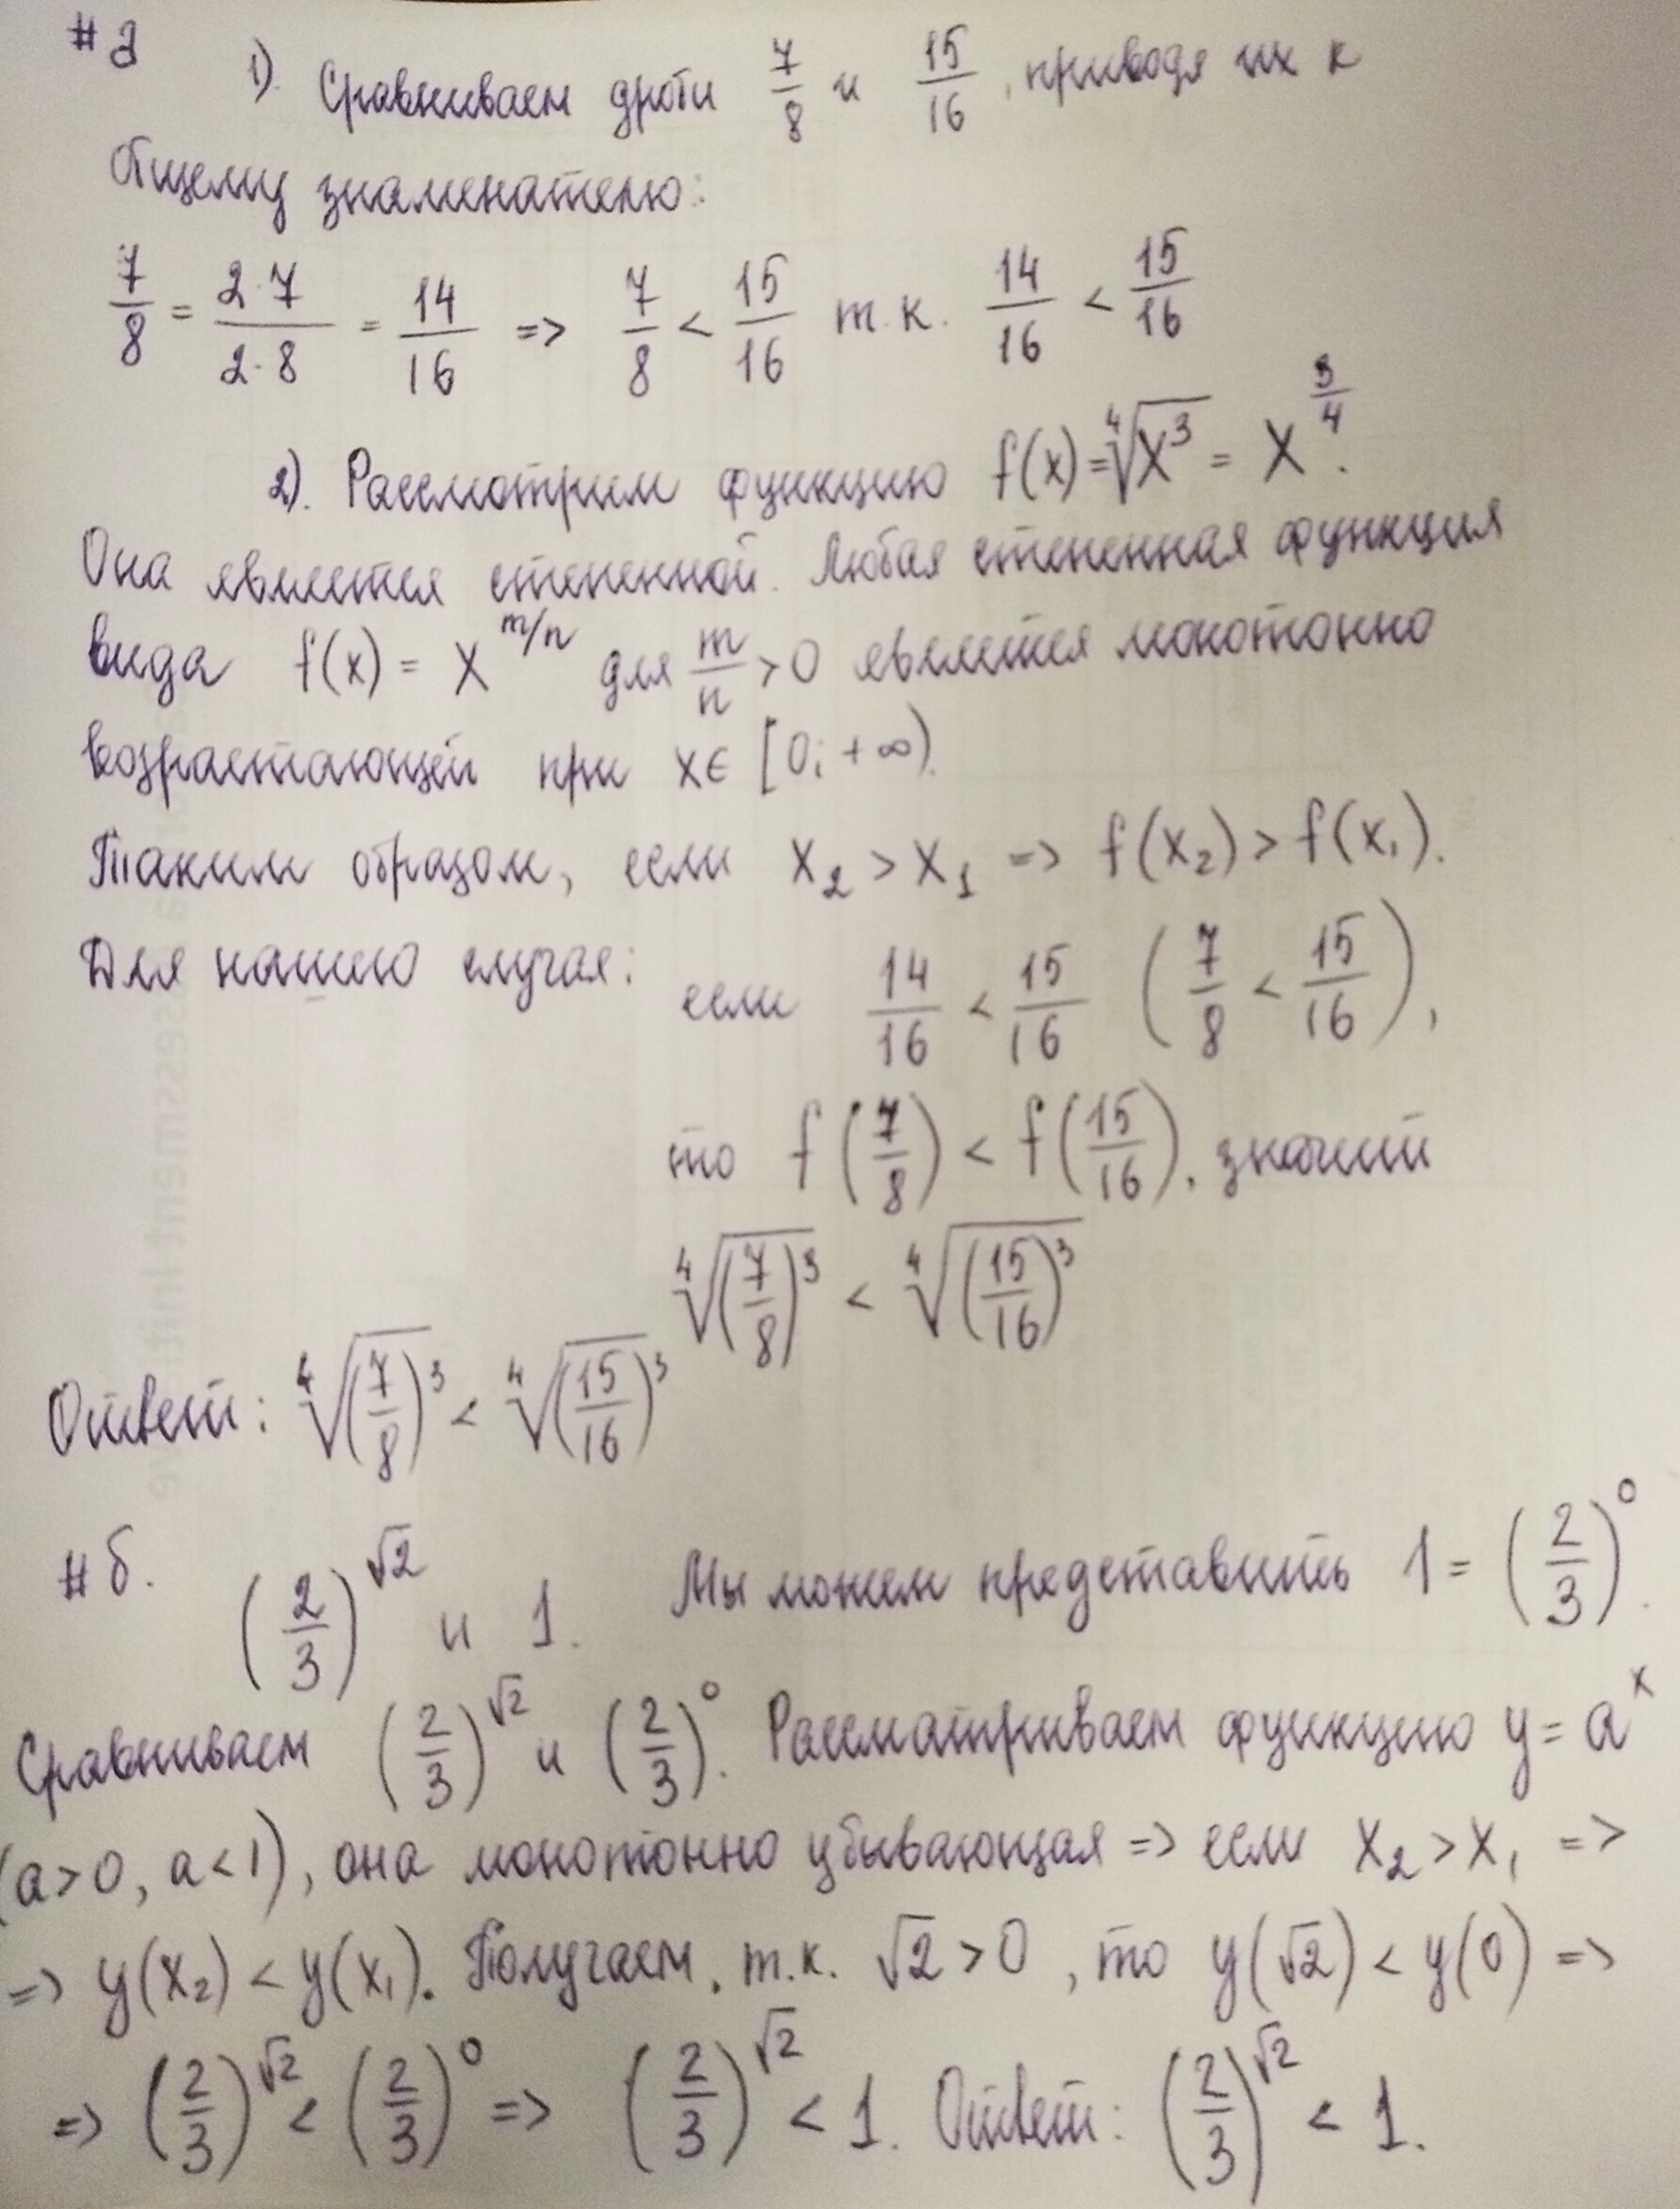 #а 1). Сравниваем дроби 7/8 и 15/16, приводя их к
общему знаменателю:
7/8 = 2·7/2·8 = 14/16 => 7/8 < 15/16 т.к. 14/16 < 15/16
2). Рассмотрим функцию f(x) = ⁴√x³ = x^3/4.
Она является степенной. Любая степенная функция
вида f(x) = x^m/n для m/n > 0 является монотонно
возрастающей при x∈ [0; +∞).
Таким образом, если x₂ > x₁ => f(x₂) > f(x₁).
Для нашего случая: если 14/16 < 15/16 (7/8 < 15/16),
то f(7/8) < f(15/16), значит
⁴√(7/8)³ < ⁴√(15/16)³
Ответ: ⁴√(7/8)³ < ⁴√(15/16)³
#б. (2/3)^√2 и 1. Мы можем представить 1 = (2/3)^0.
Сравниваем (2/3)^√2 и (2/3)^0. Рассматриваем функцию y = a^x
(a>0, a<1), она монотонно убывающая => если x₂ > x₁ =>
=> y(x₂) < y(x₁). Получаем, т.к. √2 > 0, то y(√2) < y(0) =>
=> (2/3)^√2 < (2/3)^0 => (2/3)^√2 < 1. Ответ: (2/3)^√2 < 1.